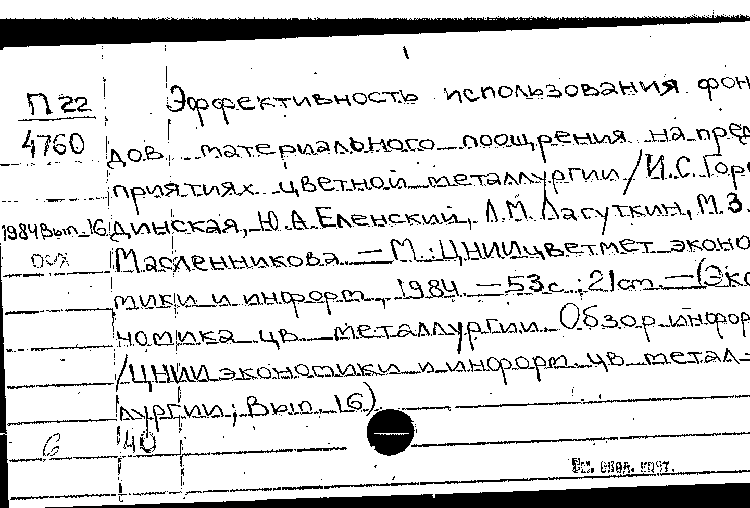 П 22 Эффективность использования фон
4760 дов материального поощрения на пред
приятиях цветной металлургии / И.С. Горо
1984 Вып. 16 динская, Ю.А. Еленский, Л.М. Лагуткин, М.З.
Масленникова. — М.: ЦНИИцветмет эконо
мики и информ, 1984. — 53 с.; 21 см. — (Эко
номика цв. металлургии. Обзор. информ.
/ЦНИИ экономики и информ. цв. метал-
лургии; Вып. 16)
6 40